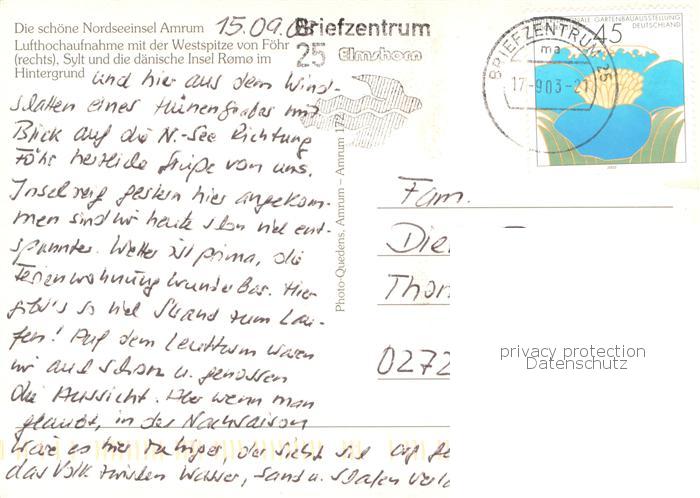 Die schöne Nordseeinsel Amrum
Lufthochaufnahme mit der Westspitze von Föhr
(rechts), Sylt und die dänische Insel Rømø im
Hintergrund
15.09.03
Briefzentrum
25 Elmshorn
BRIEFZENTRUM 25
ma
17-9 03-21
GARTENBAUAUSSTELLUNG
DEUTSCHLAND
45
und hier aus dem Wind-
schatten eines Hünengrabes mit
Blick auf die N.-See Richtung
Föhr herzliche Grüße von uns.
Insel gestern hier angekom-
men sind wir heute schon viel ent-
spannter. Wetter ist prima, die
Ferienwohnung wunderbar. Hier
gibt's so viel Strand zum Lau-
fen! Auf dem Leuchtturm waren
wir auch schon u. genossen
die Aussicht. Aber wenn man
glaubt, in der Nachsaison
wäre es hier ruhiger, der sieht sich
das Volk zwischen Wasser, Sand u.
Photo-Quedens, Amrum – Amrum 172
Fam.
Die
Thor
0272
privacy protection
Datenschutz